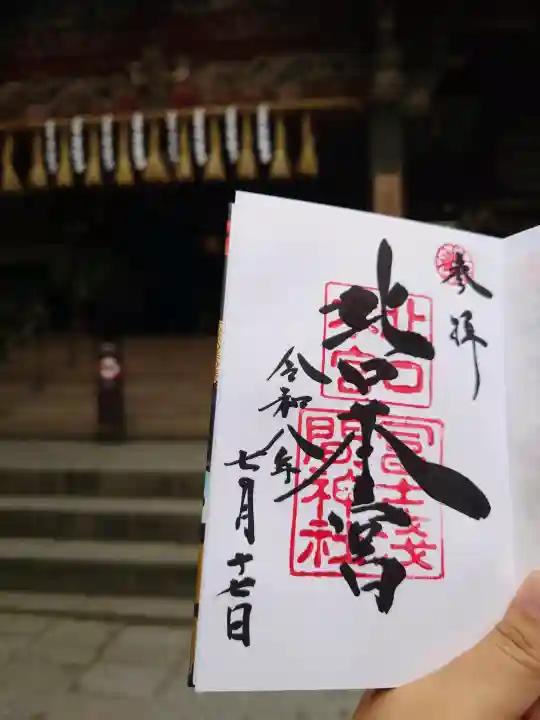 参拝
北口本宮
北口本宮
冨士浅間神社
令和八年
七月十七日